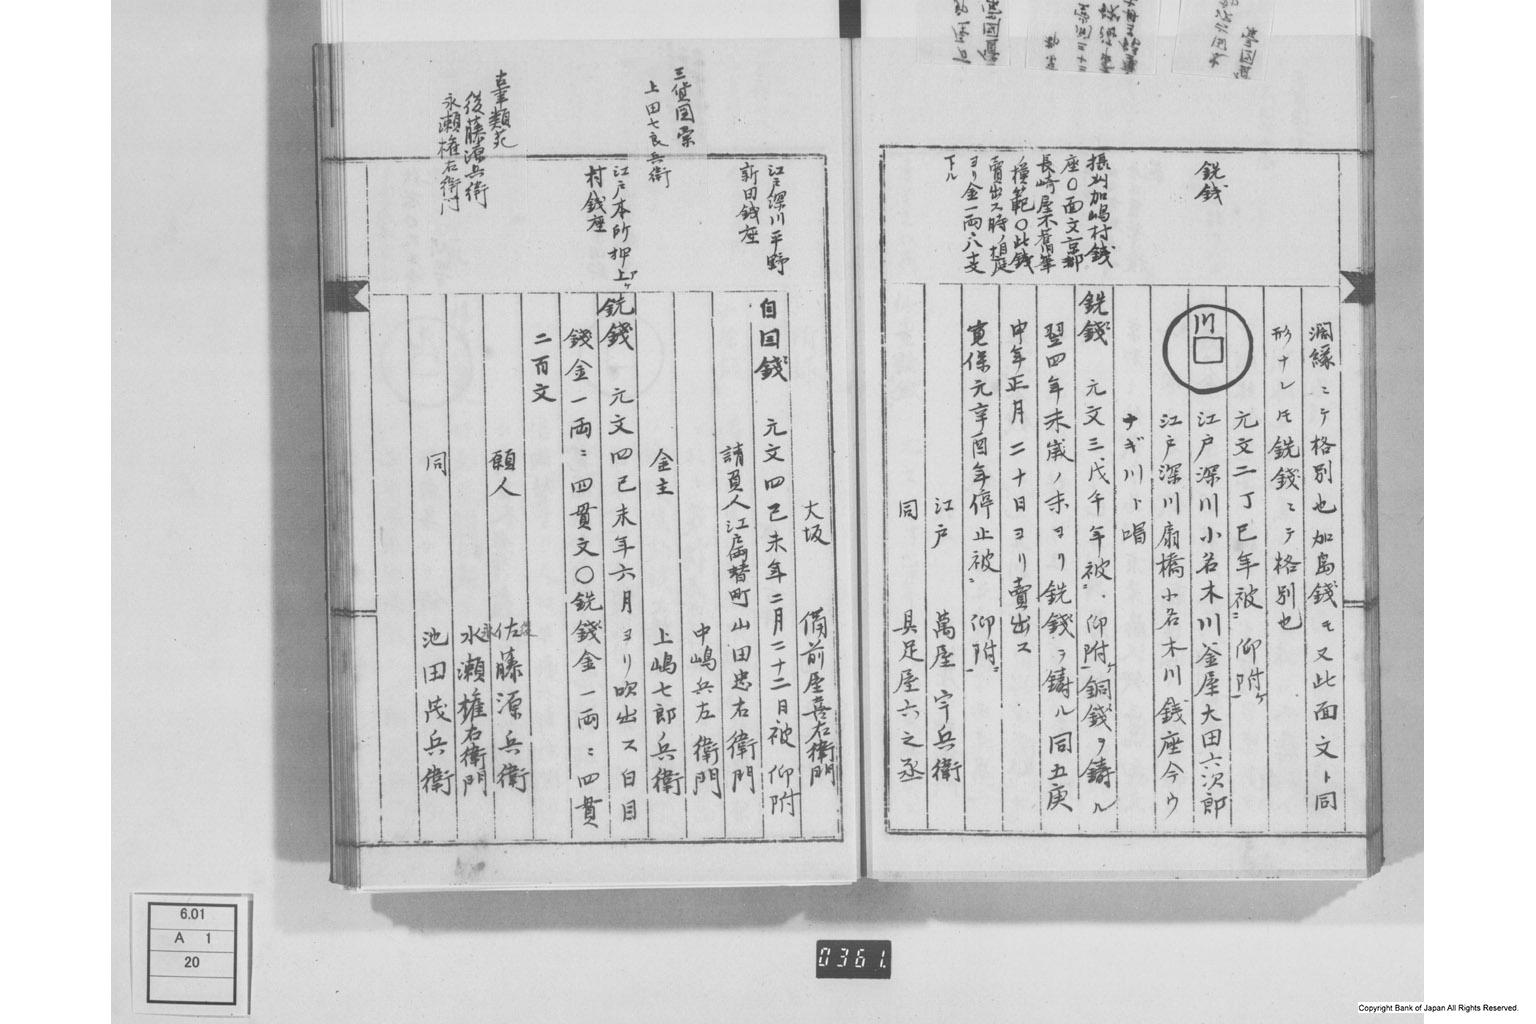 銑銭
摂州加嶋村銭
座〇面文京都
長崎屋不舊筆
ノ模範〇此銭
賣出ス時ノ相庭
ヨリ金一両ニ八支
下ル
濶縁ニテ格別也加島錢モ又此面文ト同
形ナレモ銑錢ニテ格別也
元文二丁巳年被ニ仰附ケ一
川
江戸深川小名木川釜屋大田六次郎
江戸深川扇橋小名木川錢座今ウ
ナギ川ト唱
銑錢 元文三戊午年被ニ仰附ケ一銅錢ヲ鋳ル
翌四年未歳ノ末ヨリ銑錢ヲ鋳ル同五庚
申年正月二十日ヨリ賣出ス
寛保元辛酉年停止被ニ仰附一
江戸 萬屋宇兵衛
同 具足屋六之丞
三貨図彙
上田七良兵衛
古事類苑
後藤源兵衛
永瀬権右衛門
江戸深川平野
新田銭座
江戸本所押上ケ
村銭座
大坂 備前屋喜右衛門
白目錢 元文四己未年二月二十二日被仰附
請負人江戸両替町山田忠右衛門
中嶋兵左衛門
金主 上嶋七郎兵衛
銑錢 元文四己未年六月ヨリ吹出ス白目
錢金一両ニ四貫文〇銑錢金一両ニ四貫
二百文
願人 佐藤源兵衛
永
水瀬権右衛門
同 池田茂兵衛
6.01
A 1
20
0361.
Copyright Bank of Japan All Rights Reserved.